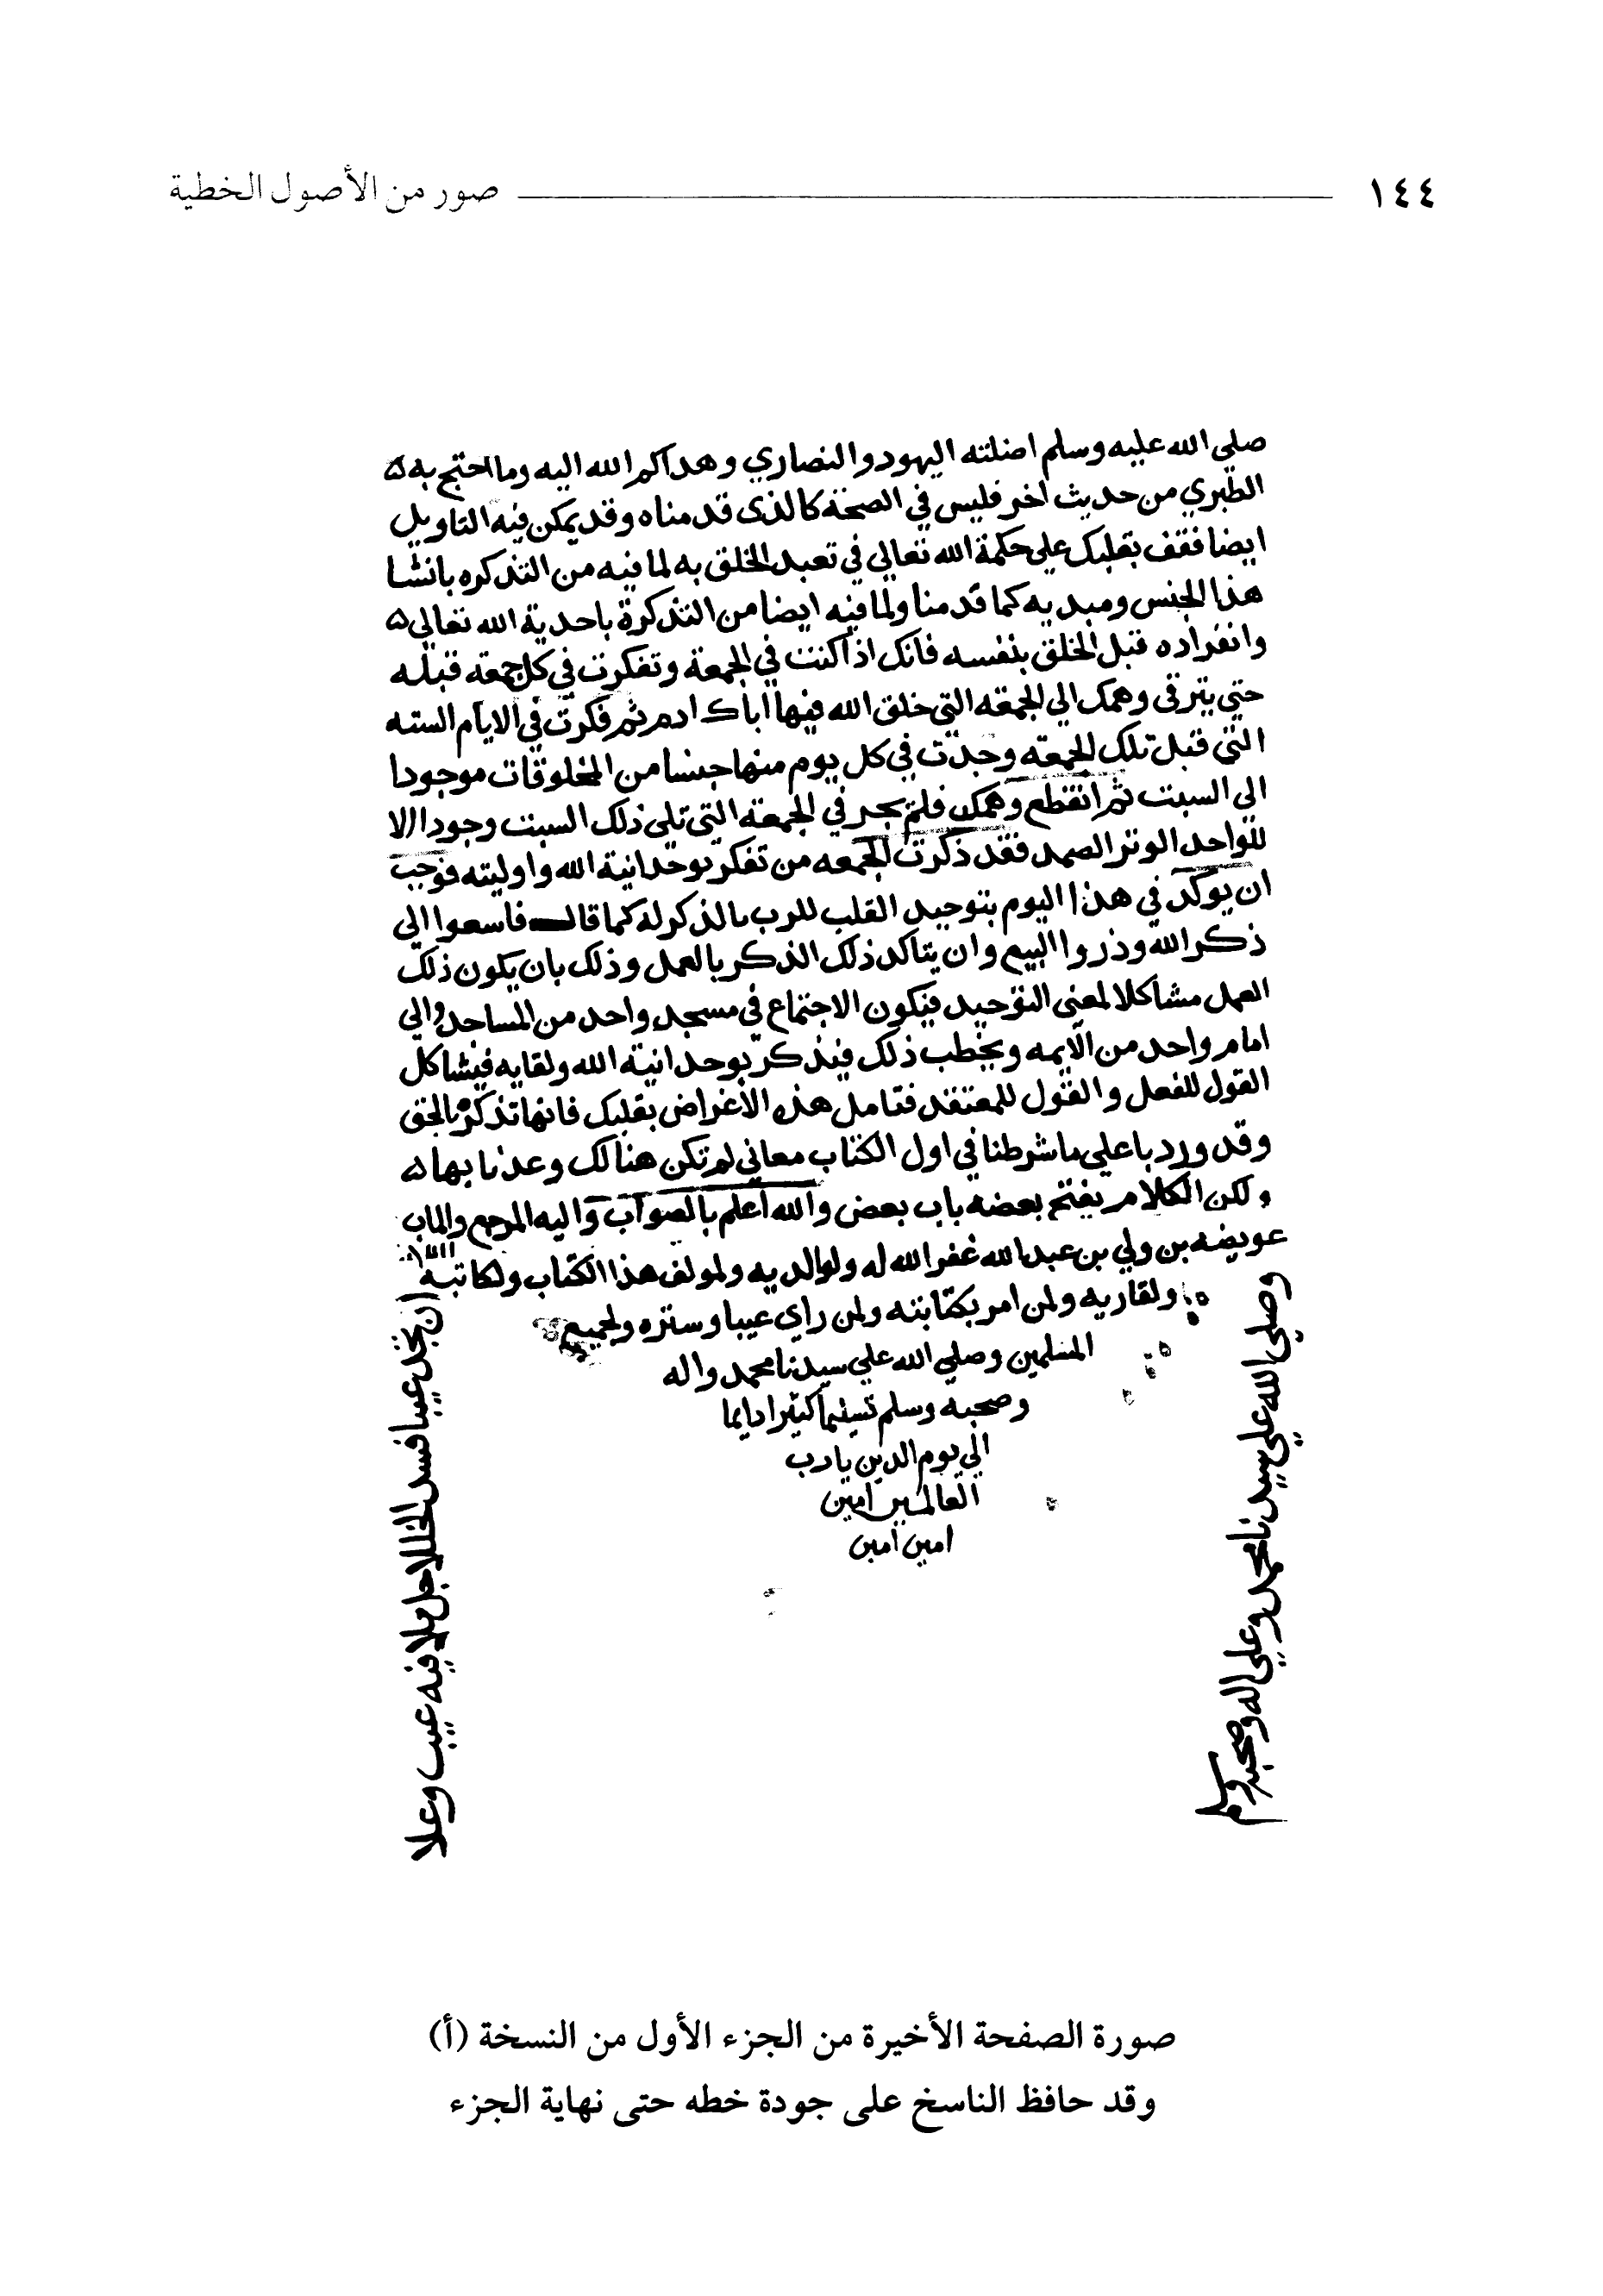 ١٤٤ صور من الأصول الخطية
صلي الله عليه وسلم اضلته اليهود والنصاري وهداكم الله اليه وما احتج به
الطبري من حديث اخر فليس في الصحة كالذى قدمناه وقد يمكن فيه التاويل
ايضا فقف بقلبك على حكمة الله تعالي في تعبد الخلق به لما فيه من التذكره بانشا
هذا الجنس ومبديه كما قدمنا ولما فيه ايضا من التذكرة باحدية الله تعالي
وانفراده قبل الخلق بنفسه فانك اذا كنت في الجمعة وتفكرت في كل جمعة قبله
حتي يترقى وهمك الي الجمعه التي خلق الله فيها اباك ادم ثم فكرت في الايام السته
التي قبل تلك الجمعه وجدت في كل يوم منها جنسا من المخلوقات موجودا
الي السبت ثم انقطع وهمك فلم تجد في الجمعة التي تلي ذلك السبت وجودا الا
للواحد الوتر الصمد فقد ذكرت الجمعه من تفكر بوحدانية الله واوليته فوجب
ان يوكد في هذا اليوم بتوحيد القلب للرب بالذكر له كما قال فاسعوا الي
ذكر الله وذروا البيع وان يتاكد ذلك الذكر بالعمل وذلك بان يكون ذلك
العمل مشاكلا لمعني التوحيد فيكون الاجتماع في مسجد واحد من المساجد والي
امام واحد من الايمه ويخطب ذلك فيذكر بوحدانية الله ولقايه فيشاكل
القول للفعل والقول للمعتقد فتامل هذه الاغراض بقلبك فانها تذكرة بالحق
وقد ورد باعلي ما شرطنا في اول الكتاب معاني لم تكن هنالك وعدنا بها
ولكن الكلام يفتح بعضه باب بعض والله اعلم بالصواب واليه المرجع والماب
عويضه بن ولي بن عبد الله غفر الله له ولوالديه ولمولف هذا الكتاب ولكاتبه
ولقاريه ولمن امر بكتابته ولمن راي عيبا وستره ولجميع
المسلمين وصلي الله علي سيدنا محمد واله
وصحبه وسلم تسليما كثيرا دايما
الي يوم الدين يا رب
العالمين امين
امين امين
وصلي الله علي سيدنا محمد وعلي اله وصحبه وسلم
ان تجد عيبا فسد الخللا جل من لا فيه عيب وعلا
صورة الصفحة الأخيرة من الجزء الأول من النسخة (أ)
وقد حافظ الناسخ على جودة خطه حتى نهاية الجزء